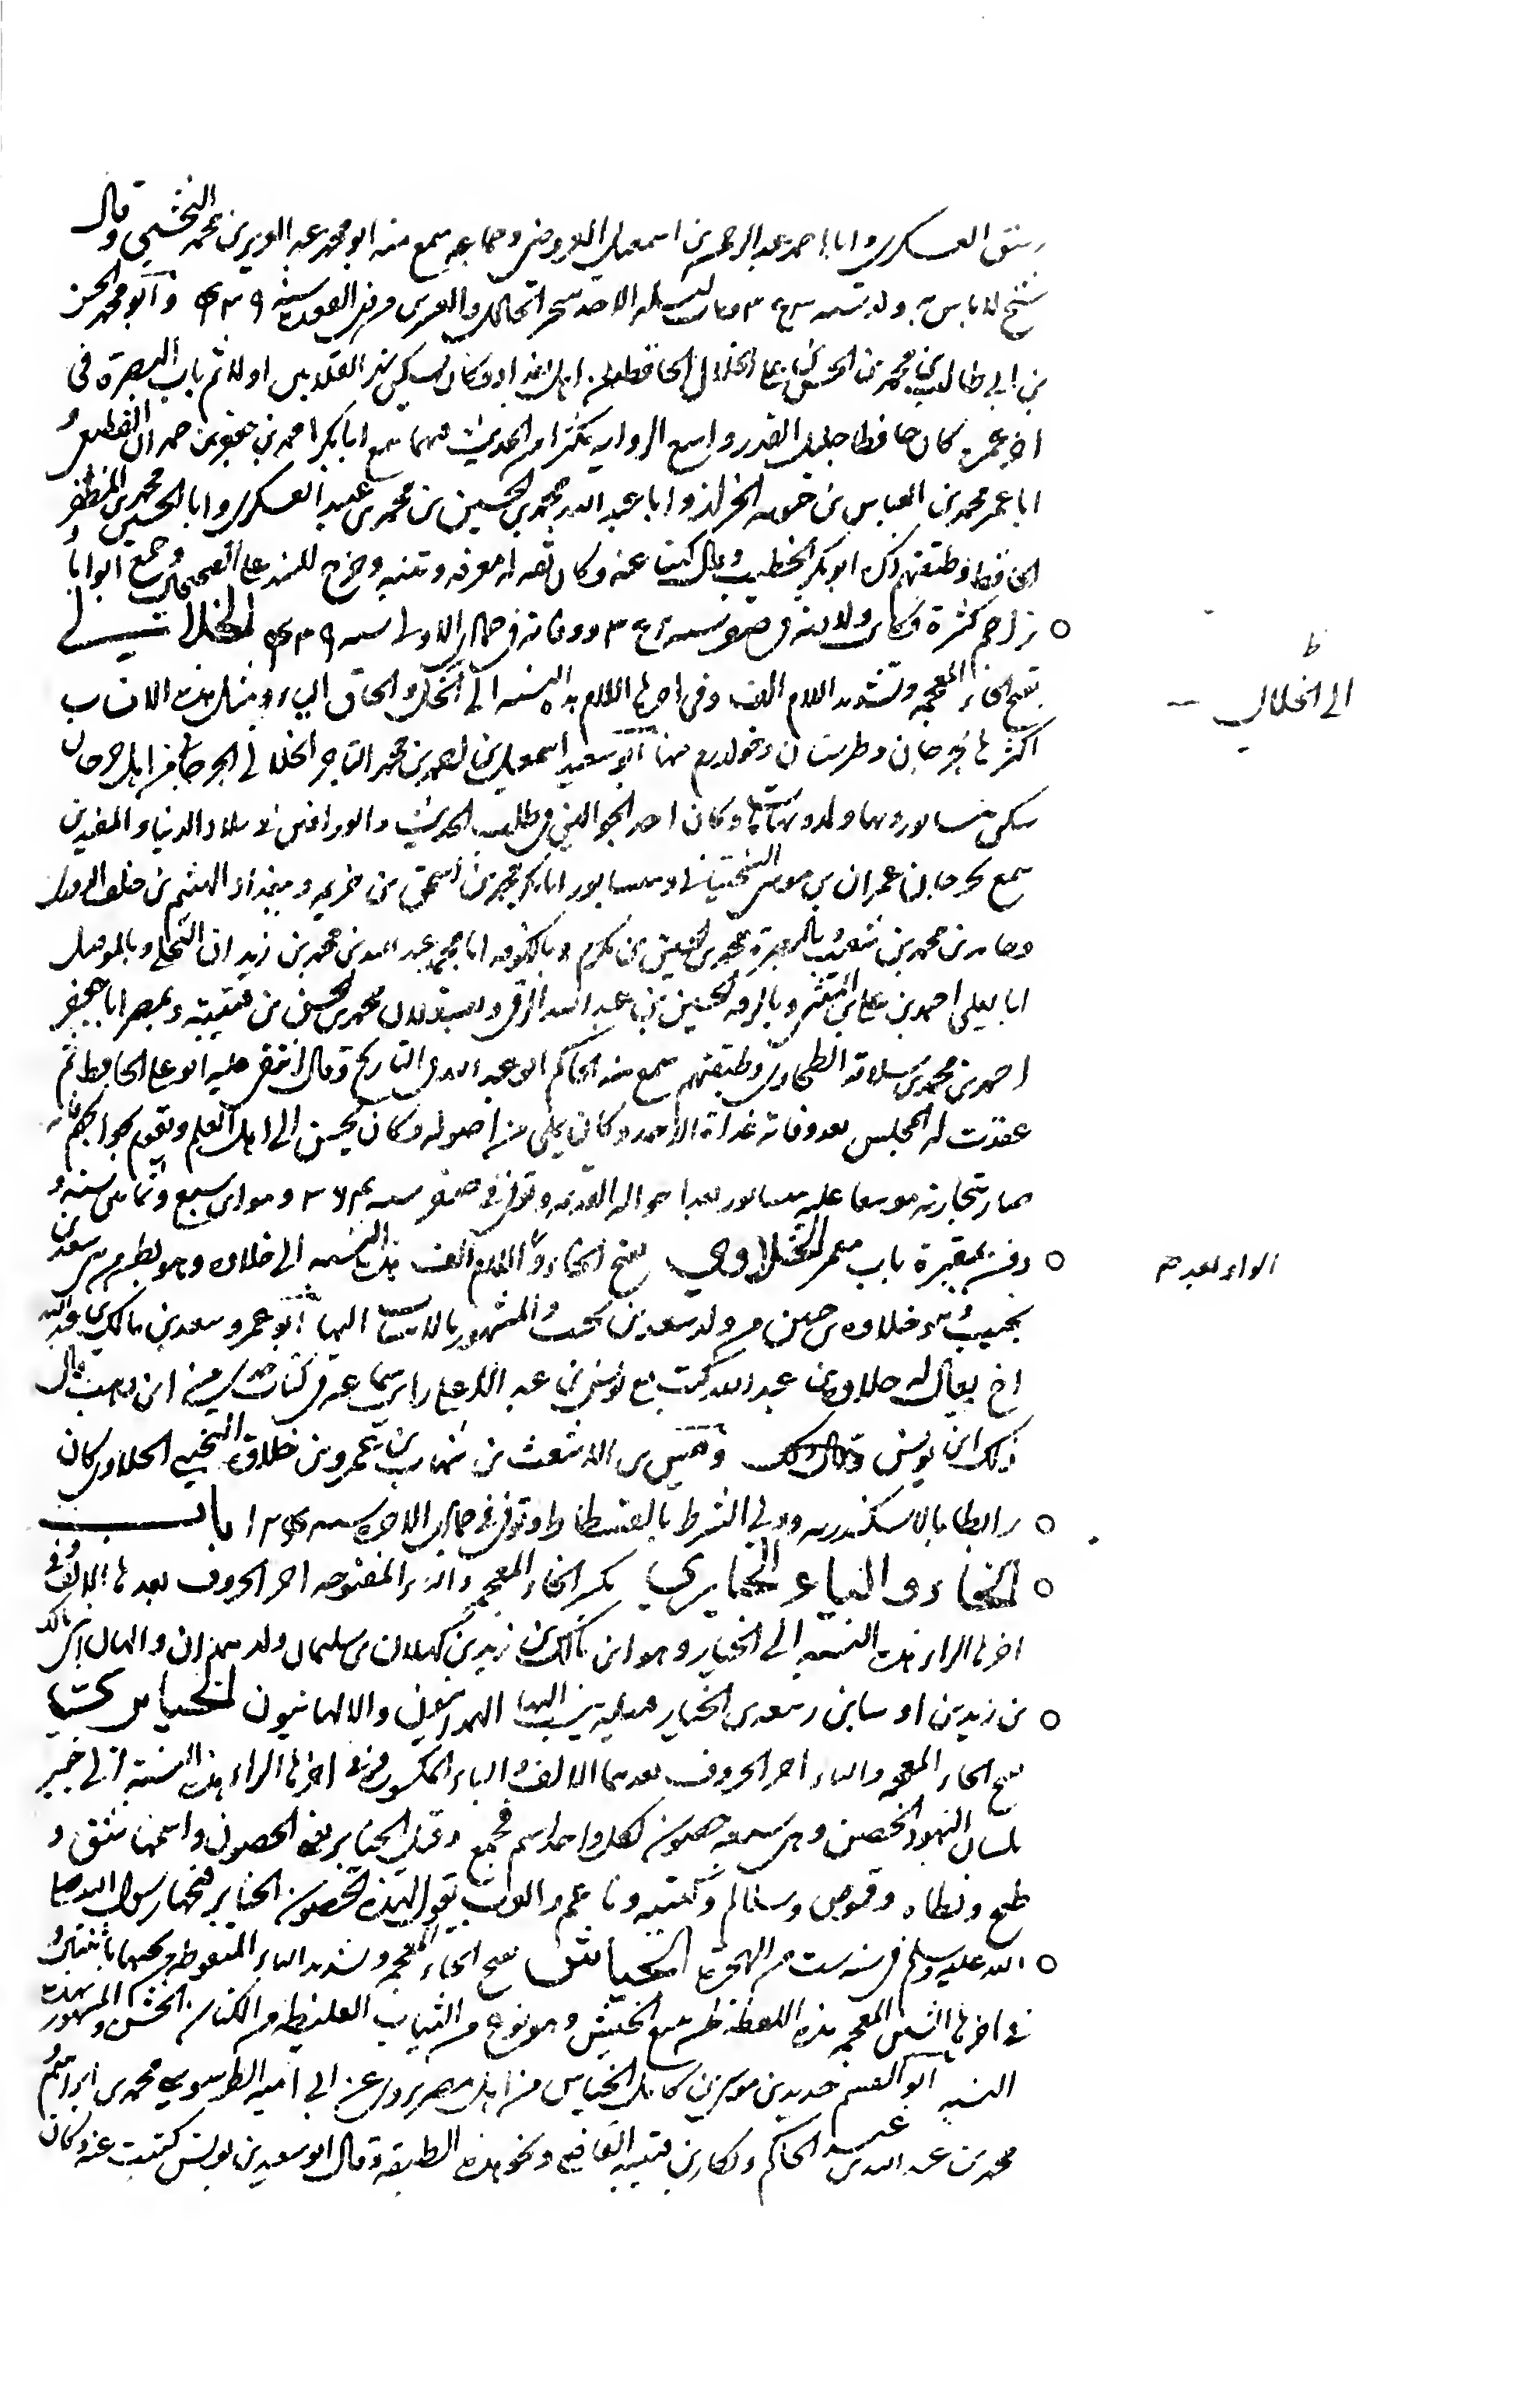 رشيق العسكري وابا احمد عبد الرحمن بن اسمعيل العروضي وجماعة سمع منه ابو محمد عبد العزيز بن محمد النخشبي وقال
شيخ لا باس به ولد سنة ومات ليلة الاحد سحر الحادي والعشرين من ذي القعدة سنة وابو محمد الحسن
بن ابي طالب محمد بن الحسن بن علي الخلال الحافظ من اهل بغداد وكان يسكن نهر القلايين اولا ثم باب البصرة في
اخر عمره كان حافظا جليل القدر واسع الرواية مكثرا من الحديث فهما سمع ابا بكر احمد بن جعفر بن حمدان القطيعي و
ابا عمر محمد بن العباس بن حيويه الخزاز وابا عبد الله محمد بن الحسين بن محمد بن عبيد العسكري وابا الحسين محمد بن المظفر
الحافظ وطبقتهم ذكره ابو بكر الخطيب وقال كتبنا عنه وكان ثقة له معرفة وتنبه وخرج المسند على الصحيحين وجمع ابوابا و
تراجم كثيرة وكان ولادته في صفر سنة ووفاته في جمادى الاولى سنة الخلالي
بفتح الخاء المعجمة وتشديد اللام الف وفي اخرها اللام هذه النسبة الى الخل والحاق الياء في مثل هذه الانساب
اكثرها بجرجان وطبرستان وخوارزم منها ابو سعيد اسمعيل بن احمد بن محمد التاجر الخلالي الجرجاني من اهل جرجان
سكن نيسابور وبها ولد وكان احد الجوالين في طلب الحديث والوراقين في بلاد الدنيا والمفيدين
سمع بجرجان عمران بن موسى السختياني وبنيسابور ابا بكر محمد بن اسحق بن خزيمة وببغداد الهيثم بن خلف الدوري
وحامد بن محمد بن شعيب بالبصرة محمد بن الحسين بن مكرم وبالكوفة ابا محمد عبد الله بن محمد بن زيدان البجلي وبالموصل
ابا يعلى احمد بن علي بن المثنى وبالرقة الحسين بن عبد الله الرقي وبعسقلان محمد بن الحسن بن قتيبة وبمصر ابا جعفر
احمد بن محمد بن سلامة الطحاوي وطبقتهم سمع منه الحاكم ابو عبد الله في التاريخ وقال انتقى عليه ابو علي الحافظ ثم
عقدت له المجلس بعد وفاته غداة الاحد وكان يملي من اصوله وكان يحسن الى اهل العلم ويقوم بحوائجهم
صار تجارته موسعا عليه بنيسابور بعد احواله القديمة وتوفي في صفر سنة وهو ابن سبع وثمانين سنة و
دفن بمقبرة باب معمر الخلاوي بفتح الخاء واللام الف هذه النسبة الى خلاوة وهو بطن من سعد بن
تجيب هو خلاوة بن من ولد سعد بن تجيب والمشهور بالانتساب اليها ابو عمرو سعد بن مالك بن عبد الله
اخ يقال له خلاوة بن عبد الله كتب مع يونس بن عبد الاعلى رايت سماعه في كتاب جدي من ابن وهب قال
ذلك ابن يونس وقيس بن الاشعث بن شهاب بن عمرو بن خلاوة التجيبي الخلاوي كان
رابطا بالاسكندرية وولي الشرط بالفسطاط وتوفي في جمادى الاخرة سنة باب
الخاء والياء الخياري بكسر الخاء المعجمة والياء المفتوحة اخر الحروف بعدها الالف وفي
اخرها الراء هذه النسبة الى الخيار وهو ابن مالك بن زيد بن كهلان بن سليمان ولد همدان والهان ابني مالك
بن زيد بن اوسلة بن ربيعة بن الخيار قبيلة ينسب اليها الهمدانيون والالهانيون الخيابري
بفتح الخاء المعجمة والياء اخر الحروف بعدهما الالف والباء المكسورة وفي اخرها الراء هذه النسبة الى خيبر
بلسان اليهود الحصن وهي سبعة حصون لكل واحد اسم فجمع وقيل الخيابر يعني الحصون واسمها شق و
طيح ونطاه وقموص وسلالم وكتيبة وناعم والعرب تقول لهذه الحصون الخيابر فتحها رسول الله صلى
الله عليه وسلم في سنة ست من الهجرة الخياش بفتح الخاء المعجمة وتشديد الياء المنقوطة من تحتها باثنتين و
في اخرها الشين المعجمة هذه اللفظة لمن يبيع الخيش وهو نوع من الثياب الغليظة من الكتان الخشن والمشهور بهذه
النسبة ابو القسم حديد بن موسى بن كامل الخياش من اهل مصر يروي عن ابي امية الطرسوسي محمد بن ابراهيم و
محمد بن عبد الله بن عبد الحاكم وبكار بن قتيبة القاضي ونحو هذه الطبقة وقال ابو سعيد بن يونس كتبت عنه وكان
ظ
الى الخلالي